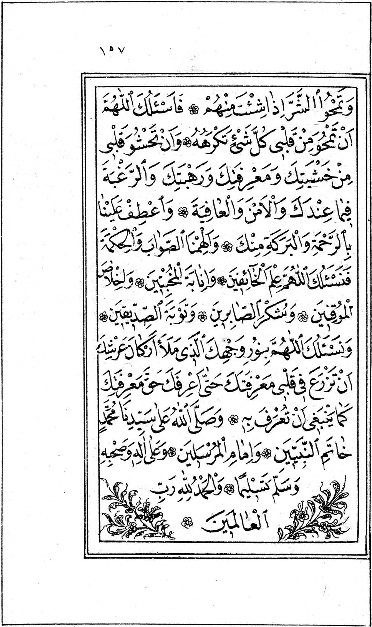 ١٥٧
وَتَمْحُو الشَّرَّ اِذَا شِئْتَ مِنْهُمْ ❊ فَاَسْئَلُكَ اللّٰهُمَّ
اَنْ تَمْحُوَ مِنْ قَلْبِى كُلَّ شَىْءٍ تَكْرَهُهُ ❊ وَاَنْ تَحْشُوَ قَلْبِى
مِنْ خَشْيَتِكَ وَمَعْرِفَتِكَ وَرَهْبَتِكَ وَالرَّغْبَةَ
فِيمَا عِنْدَكَ وَالْاَمْنَ وَالْعَافِيَةَ ❊ وَاعْطِفْ عَلَيْنَا
بِالرَّحْمَةِ وَالْبَرَكَةِ مِنْكَ ❊ وَاَلْهِمْنَا الصَّوَابَ وَالْحِكْمَةَ
فَنَسْئَلُكَ اللّٰهُمَّ عِلْمَ الْخَائِفِينَ ❊ وَاِنَابَةَ الْمُخْبِتِينَ ❊ وَاِخْلَاصَ
الْمُوقِنِينَ ❊ وَشُكْرَ الصَّابِرِينَ ❊ وَتَوْبَةَ الصِّدِّيقِينَ ❊
وَنَسْئَلُكَ اللّٰهُمَّ بِنُورِ وَجْهِكَ الَّذِى مَلَأَ اَرْكَانَ عَرْشِكَ
اَنْ تَزْرَعَ فِى قَلْبِى مَعْرِفَتَكَ حَتّٰى اَعْرِفَكَ حَقَّ مَعْرِفَتِكَ
كَمَا يَنْبَغِى اَنْ تُعْرَفَ بِهِ ❊ وَصَلَّى اللّٰهُ عَلٰى سَيِّدِنَا مُحَمَّدٍ
خَاتَمِ النَّبِيِّينَ ❊ وَاِمَامِ الْمُرْسَلِينَ ❊ وَعَلٰى اٰلِهِ وَصَحْبِهِ
وَسَلَّمَ تَسْلِيمًا ❊ وَالْحَمْدُ لِلّٰهِ رَبِّ
الْعَالَمِينَ ❊